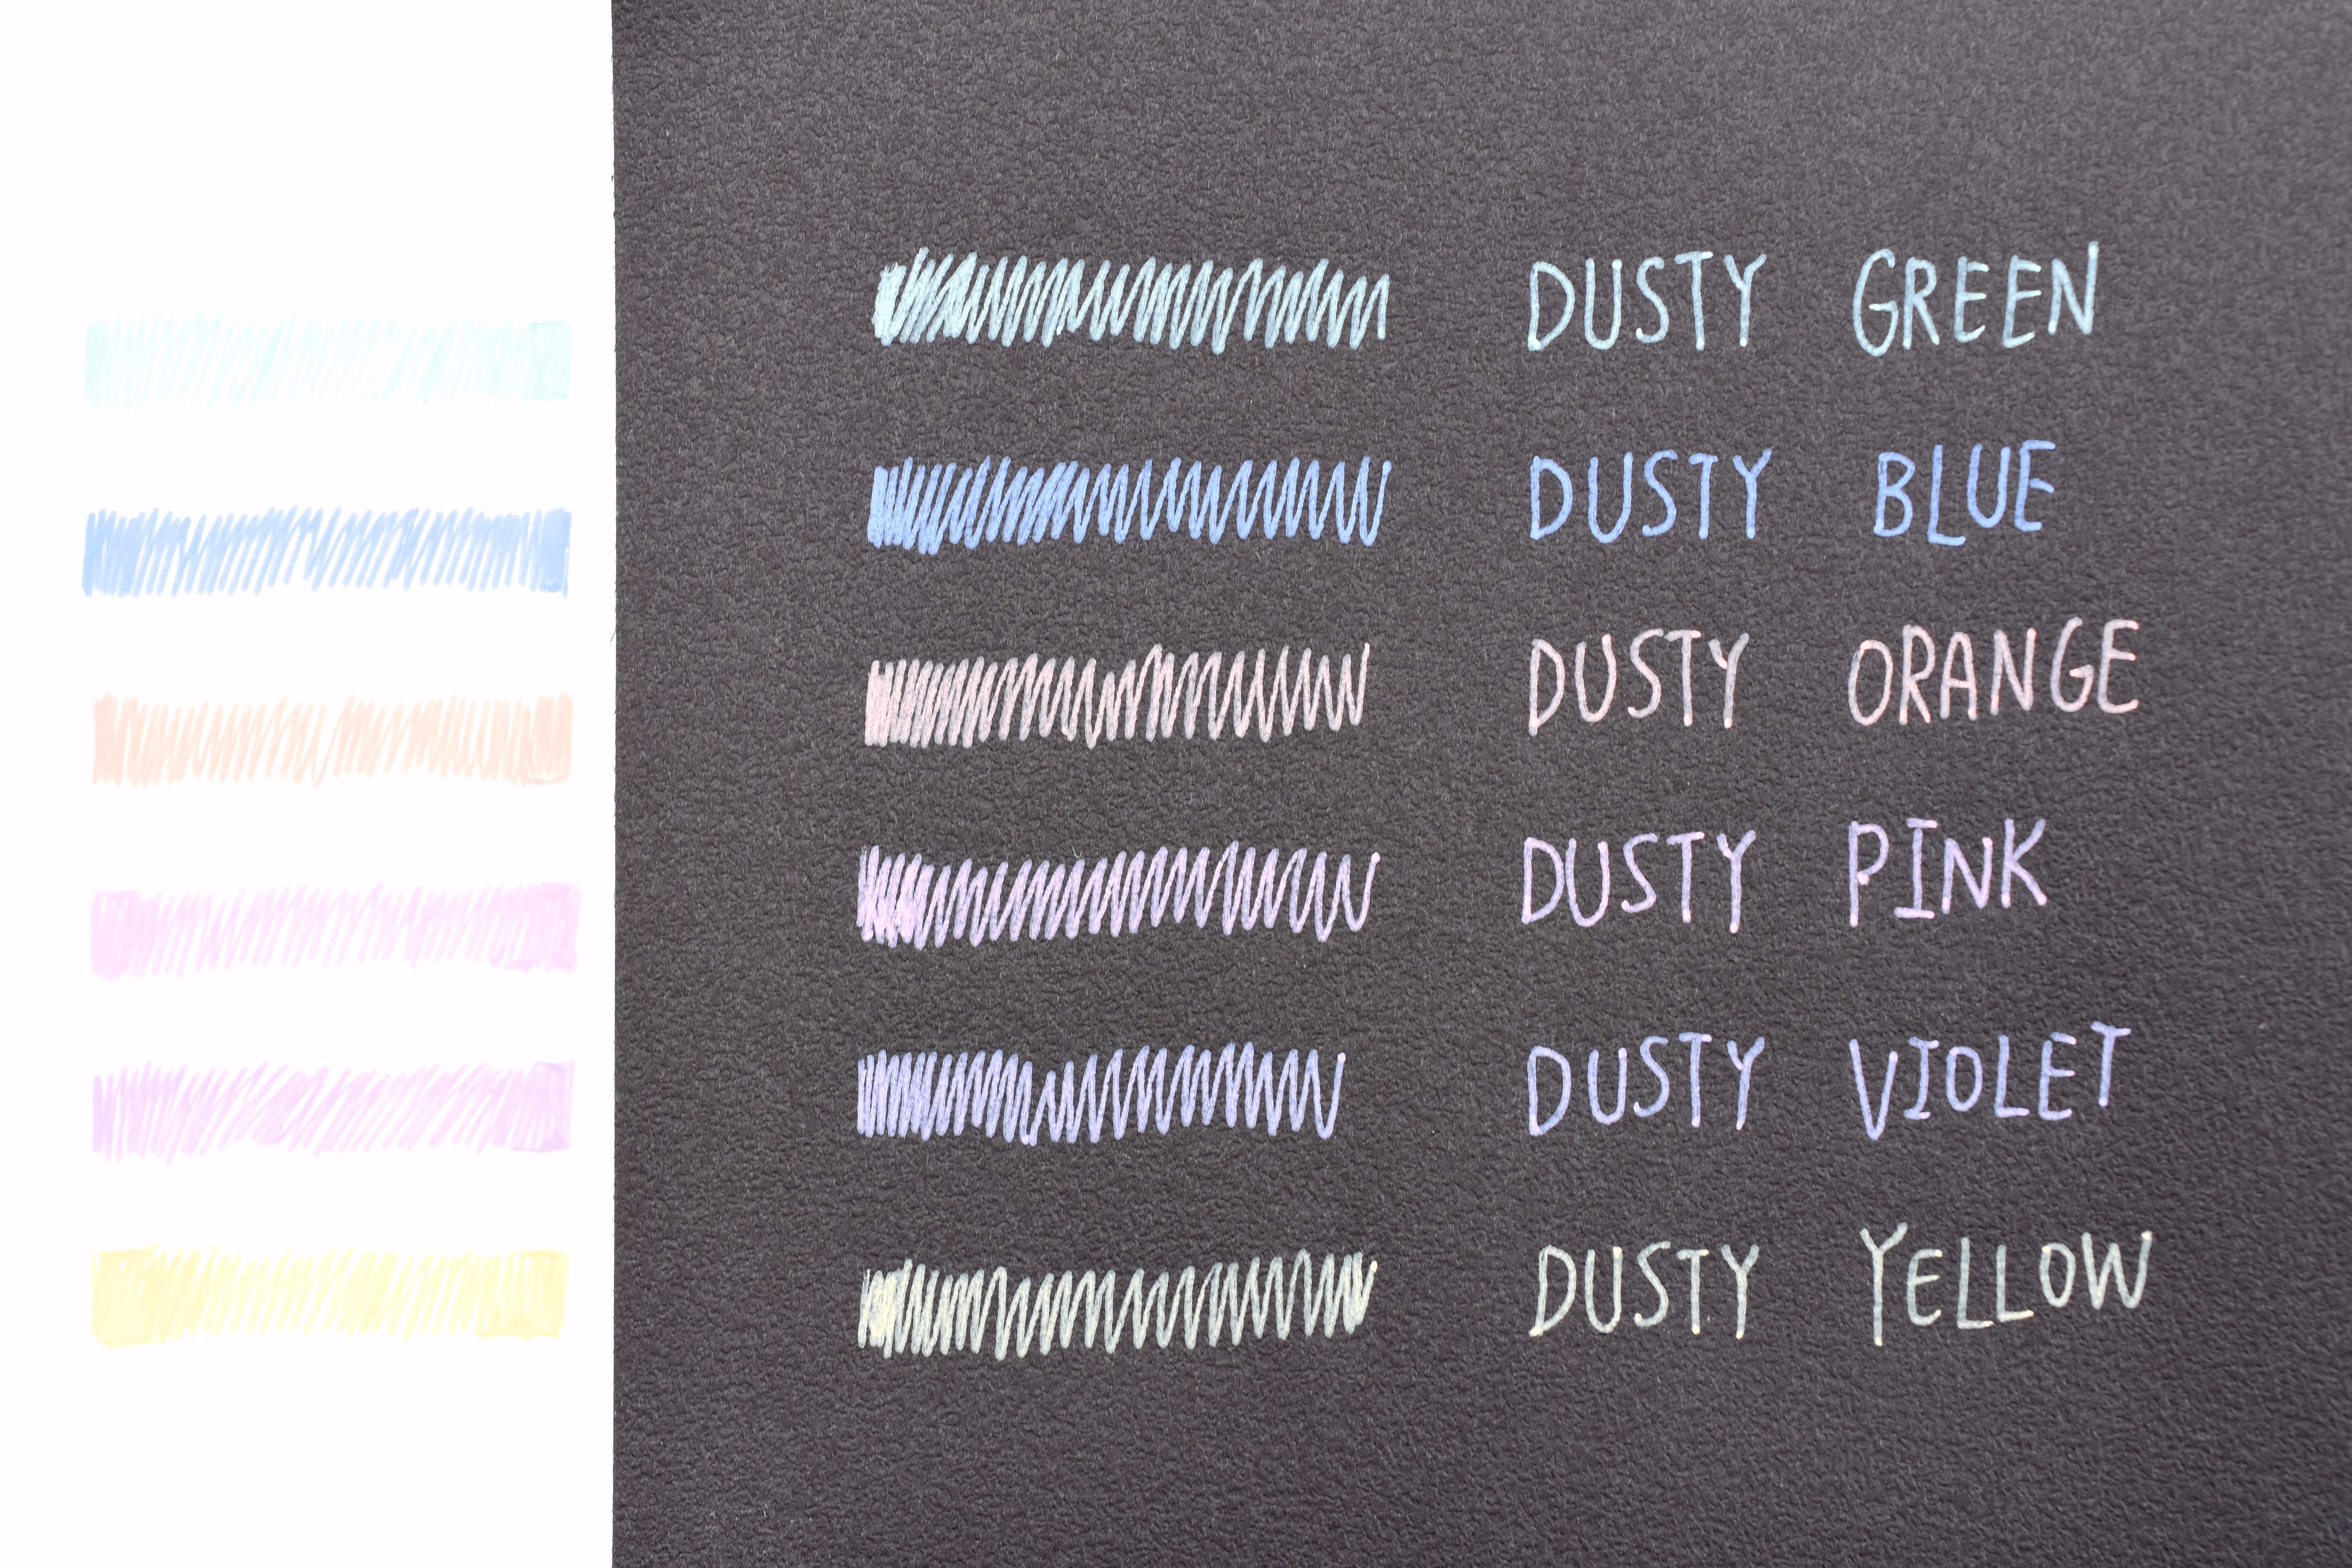 DUSTY GREEN
DUSTY BLUE
DUSTY ORANGE
DUSTY PINK
DUSTY VIOLET
DUSTY YELLOW